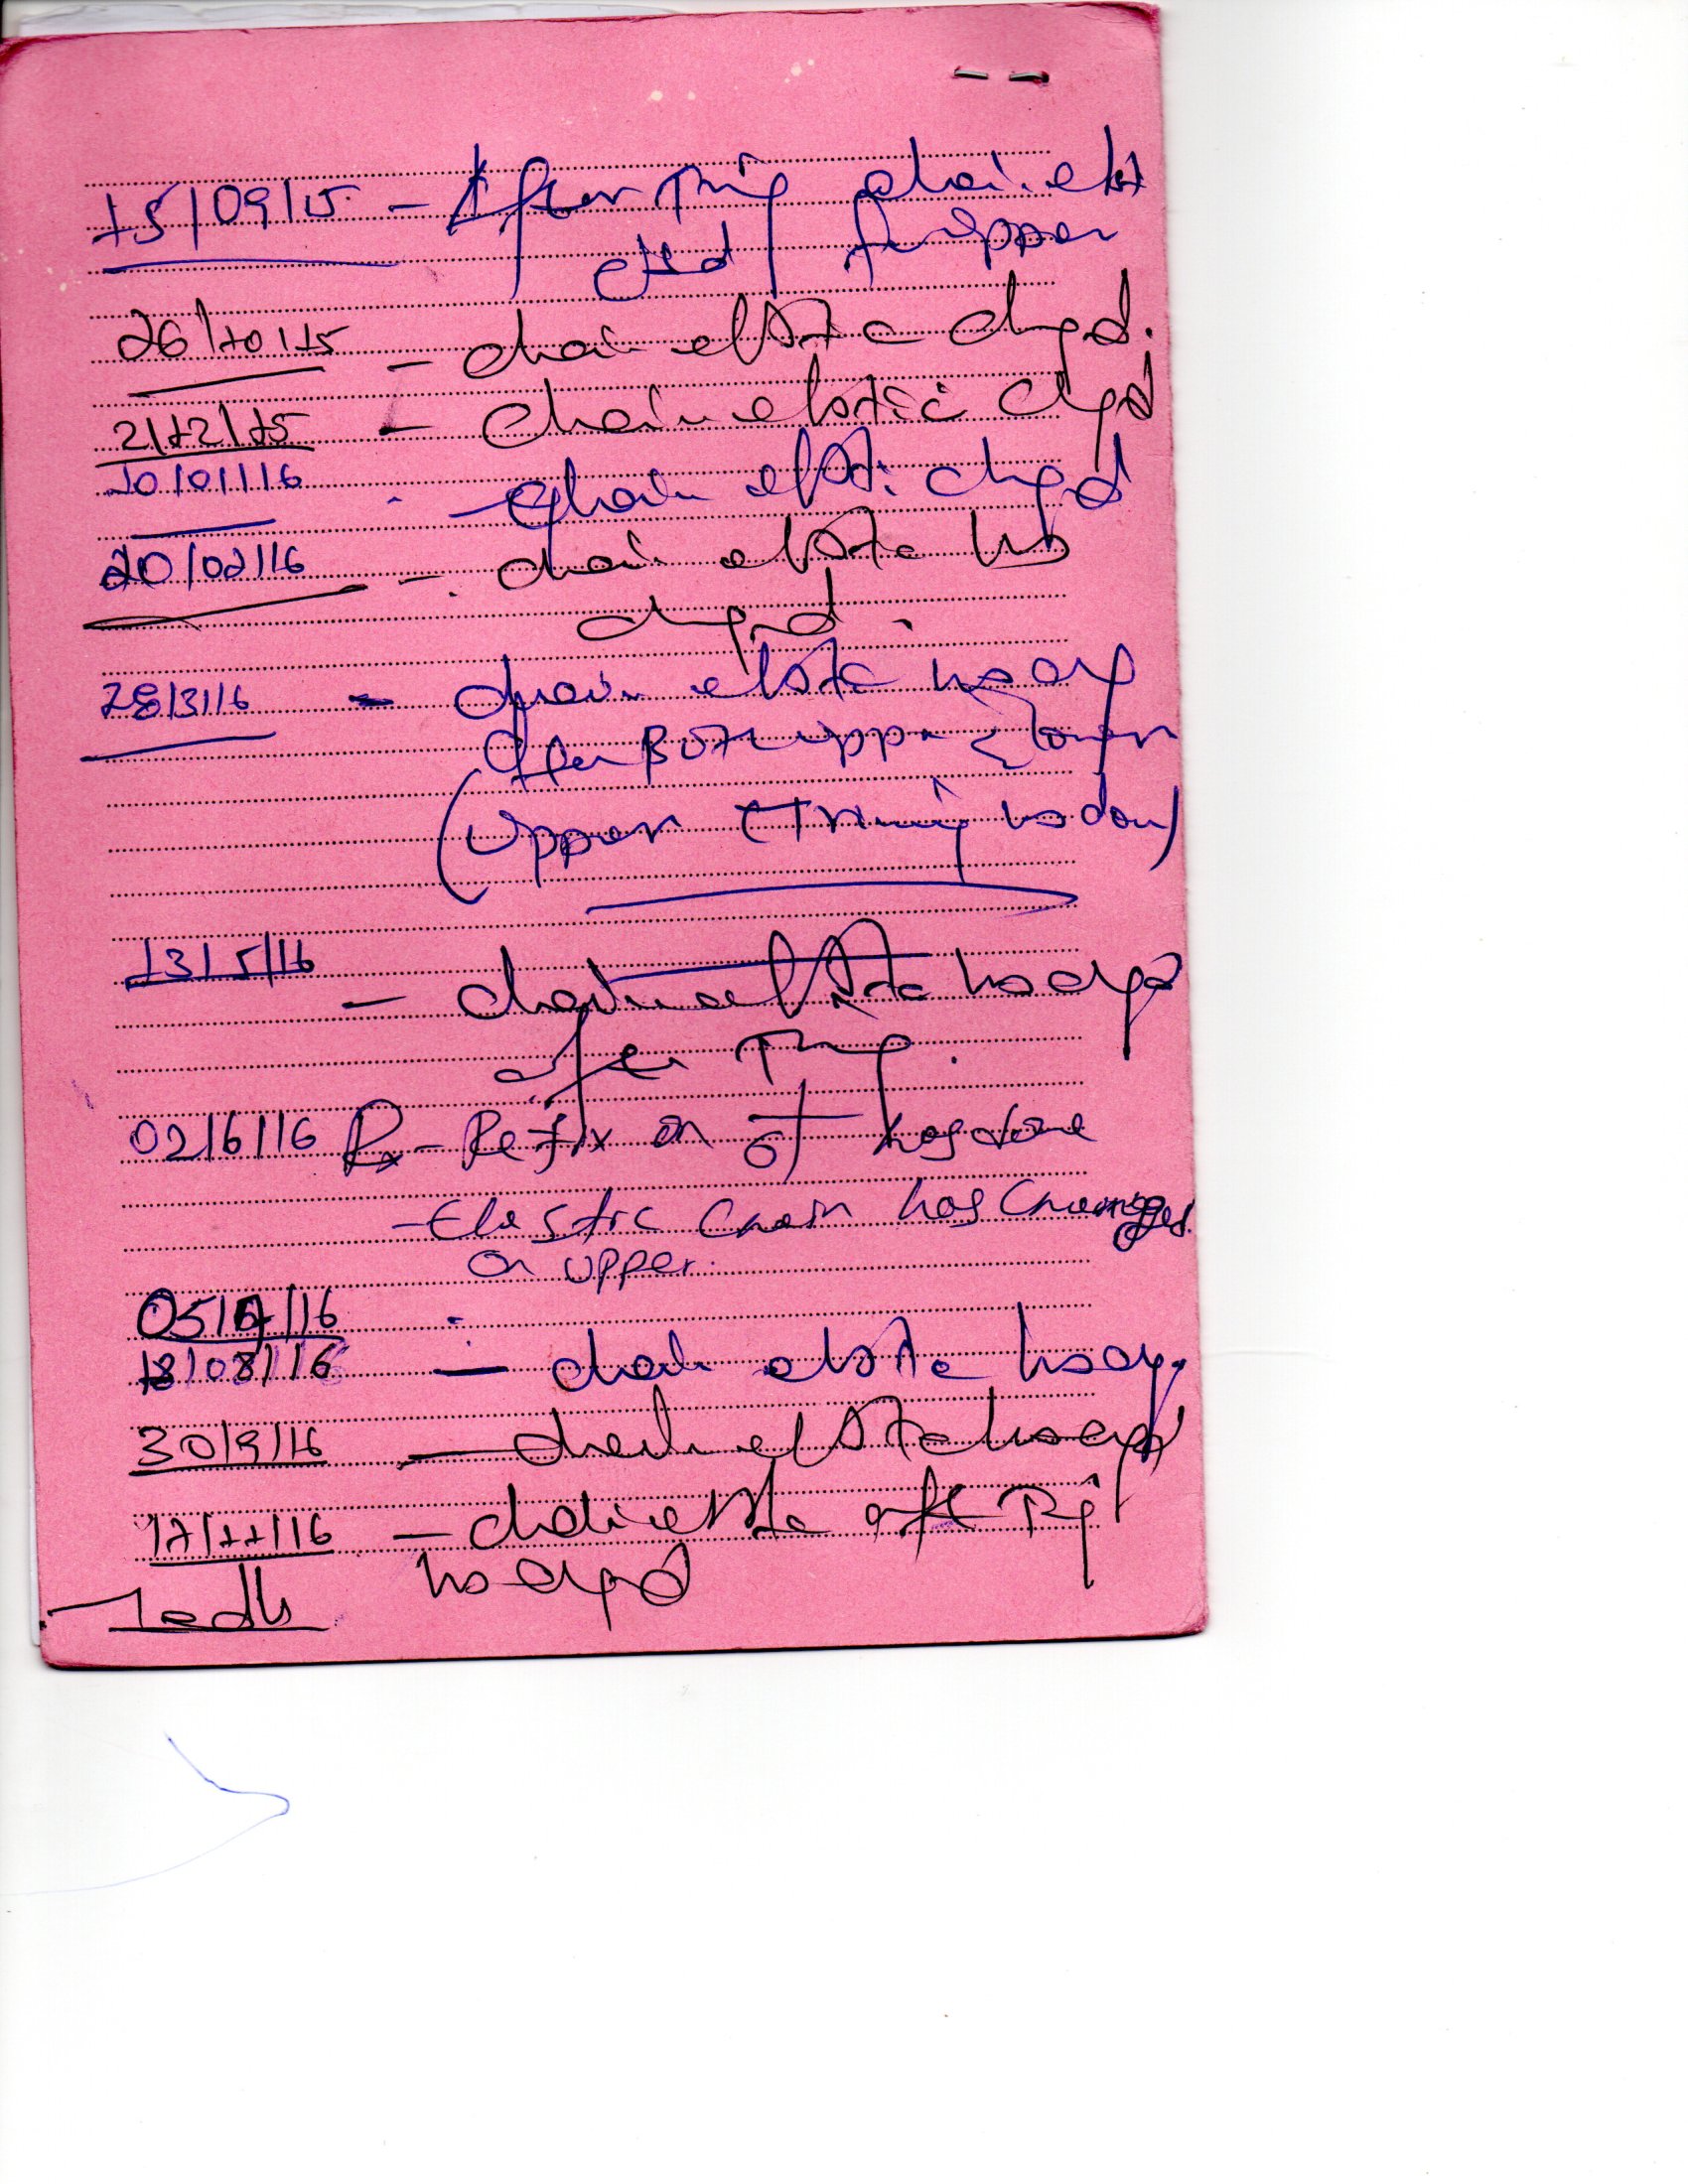 15/09/15 - After Tring chain elst
chgd for upper
26/10/15 - chain elstic chgd.
2/12/15 - chain elastic chgd
10/01/16 - chain elsti chgd
20/02/16 - chain elstic hs
chgd.
28/3/16 - chain elstic hs chg
after Both upper & lower
(upper Tring hs don)
13/5/16
- chain elstic hs chgd
after Tring.
02/6/16 Rx - Refix on 6 has done
- Elastic Chain has Changed
on upper.
05/7/16
18/08/16 - chain elstic hs chg
30/9/16 - chain elstic hs chgd
17/11/16 - chain elstic aft
hs chgd